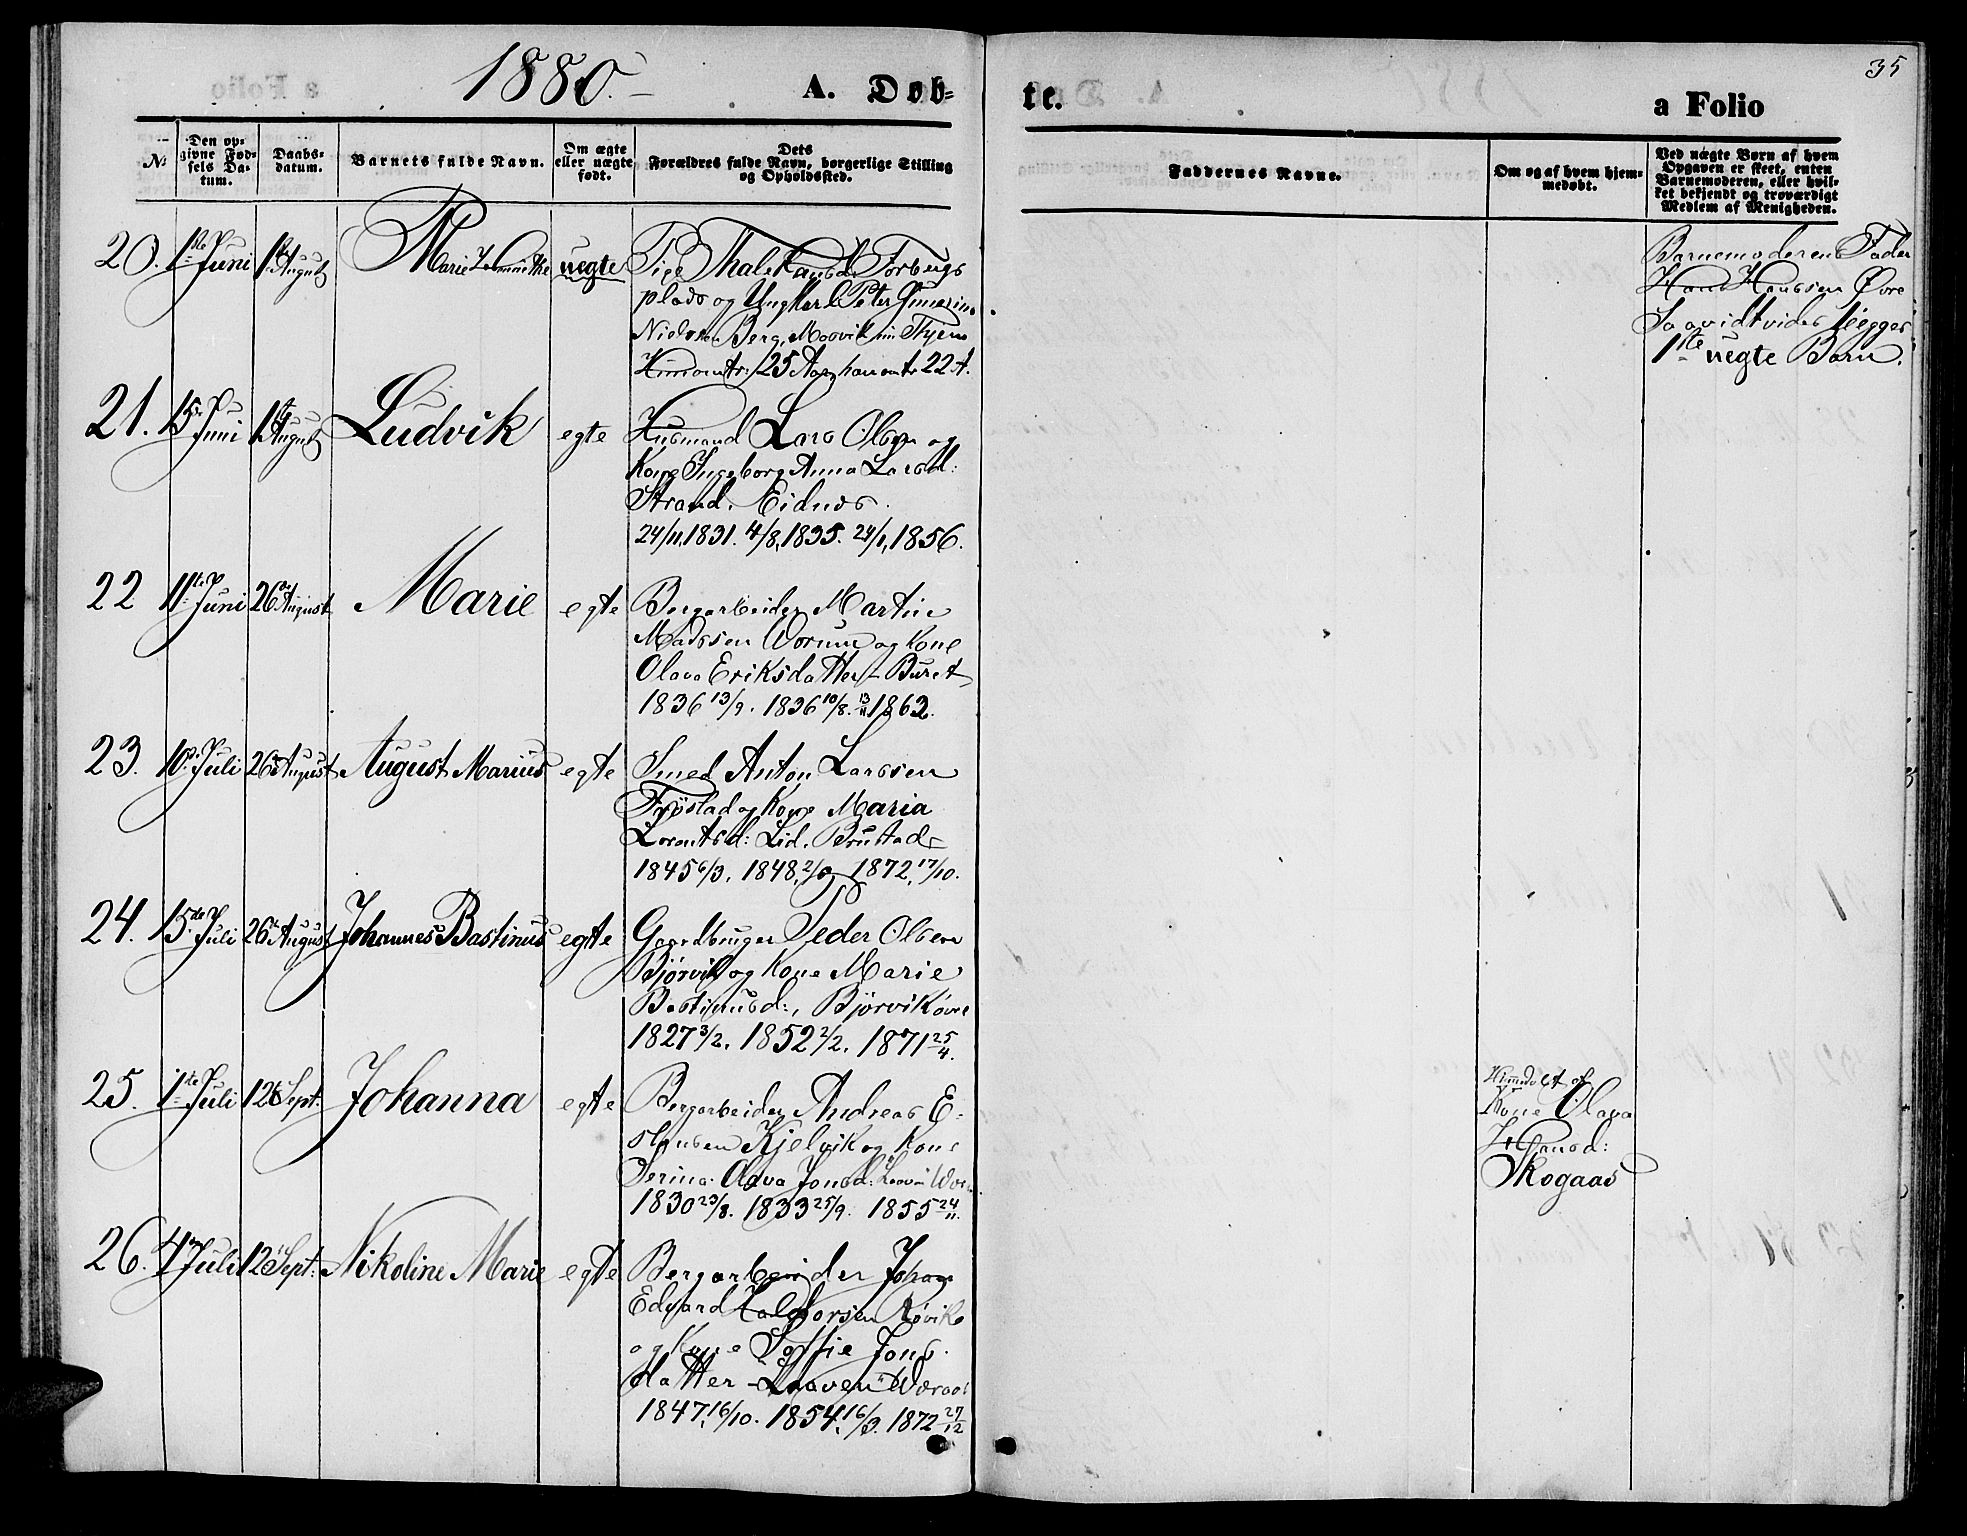 1880.
A. Døb=
te.
a Folio
35
No
Den op-
givne Fød-
sels Da-
tum.
Daabs-
datum.
Barnets fulde Navn.
Om ægte
eller uægte
født.
Dets
Forældres fulde Navn, borgerlige Stilling
og Opholdssted.
Faddernes Navne.
Om og af hvem hjem-
medøbt.
Ved uægte Børn af hvem
Opgaven er skeet, enten
Barnemoderen, eller hvil-
ket bekjendt og troværdigt
Medlem af Menigheden.
20. 1ste Juni 1ste August Marie uegte Pige
plads og Ungkarl Peter
Nielsen Berg,
25 Aar, han 22 A.
Barnemoderens Fader
Hans Hanssen Øvre
Saavidt vides Begges
1ste uegte Barn.
21. 15de Juni 1ste August Ludvik egte Husmand Lars Olsen og
Kone Ingeborg Anna Larsd:
Strand, Eidnes.
24/11, 1831. 4/8, 1835. 24/1, 1856.
22 11te Juni 26de August Marie egte Bergarbeider Martin
Madssen Vorum og Kone
Olava Eriksdatter - Buret
1836 13/9. 1836 10/8. 13/11 1862.
23. 10de Juli 26de August August Marius egte Smed Anton Larssen
Frøstad og Kone Maria
Lorentsd: Lid, Brustad
1845 6/3. 1848, 2/9 1872, 17/10.
24. 15de Juli 26de August Johannes Bastinus egte Gaardbruger Peder Olsen
Bjørvik og Kone Marie
Bastinusd:, Bjørvik øvre
1827 3/2. 1852 2/2. 1871 25/4.
25. 1ste Juli 12te Sept: Johanna egte Bergarbeider Andreas E-
stensen Kjelvik og Kone
Serina Olava Jonsd:
1830 23/8. 1833 25/9. 1855 24/11.
Hjemdøbt af
Kone Olava
Hansd:
Skogaas
26. 4de Juli 12te Sept: Nikoline Marie egte Bergarbeider Johan
Edvard Haldorsen Røvik
og Kone Soffie Jons-
datter - Laaven
1847, 16/10. 1854, 16/9. 1872 27/12